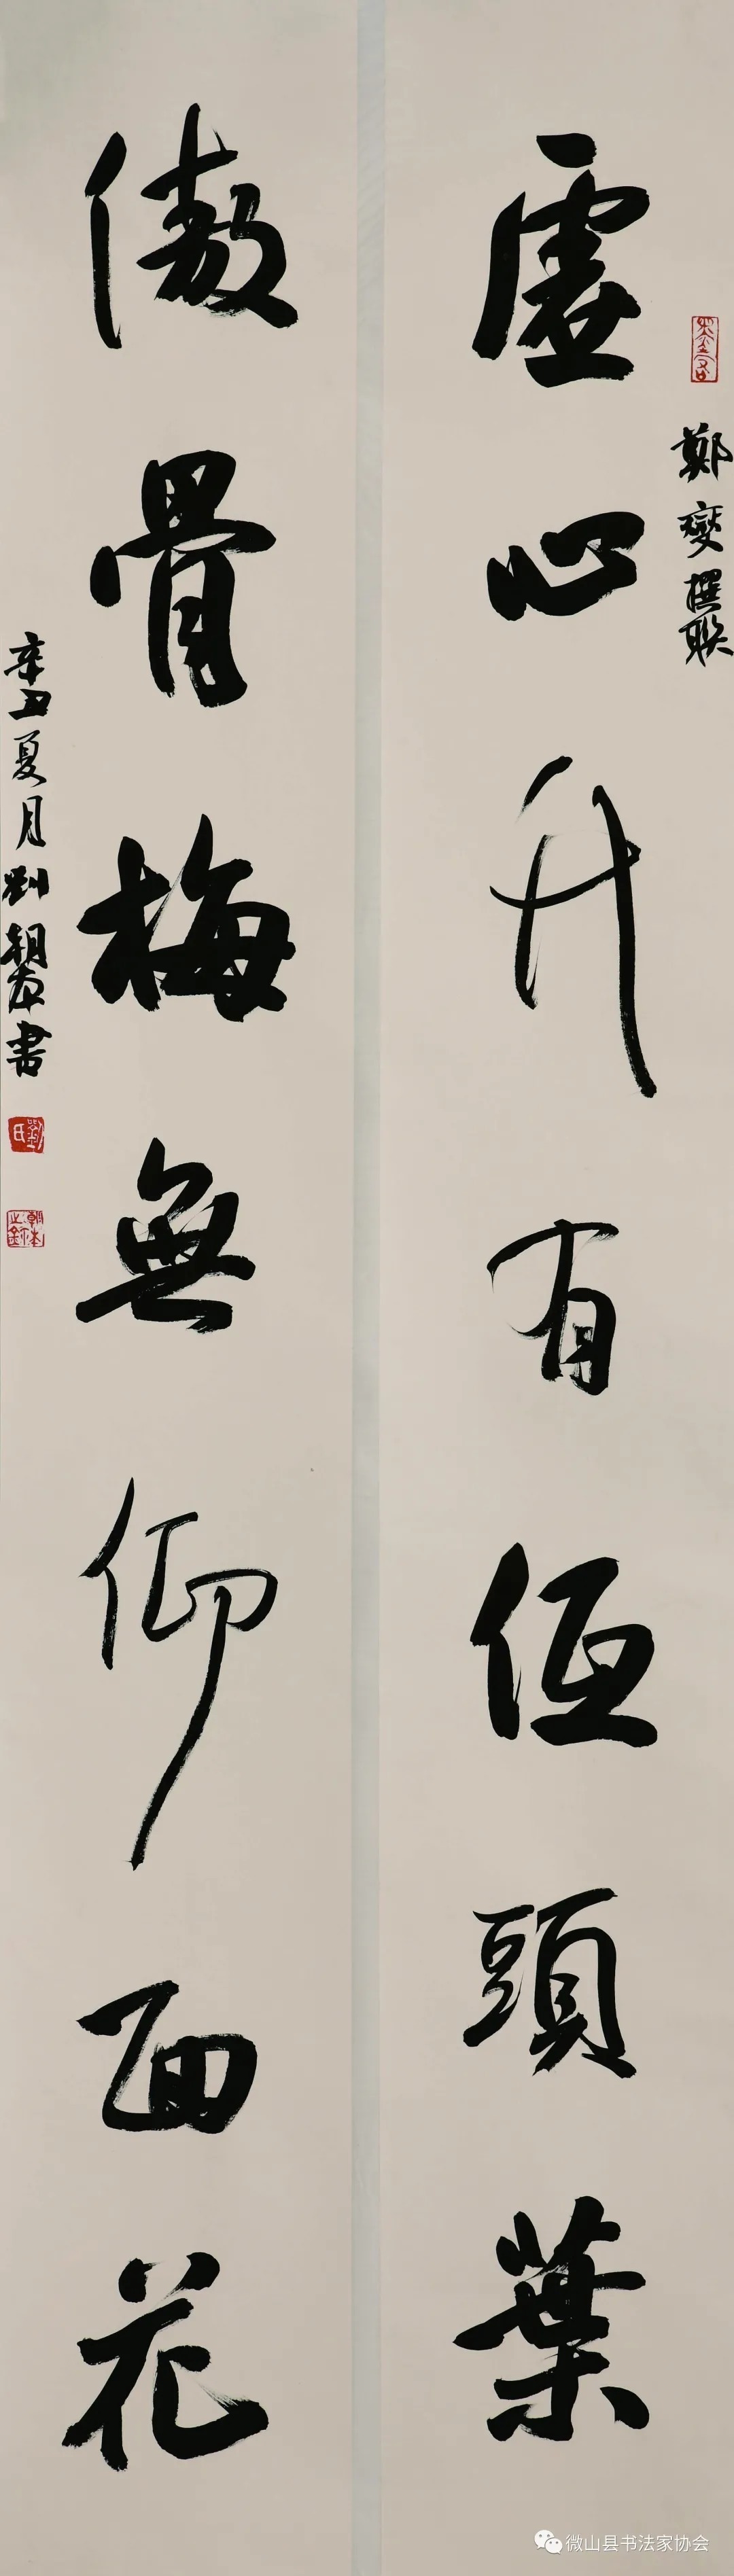 鄭燮撰聯
虛心竹有低頭葉
傲骨梅無仰面花
辛丑夏月劉朝本書
劉氏
微山县书法家协会